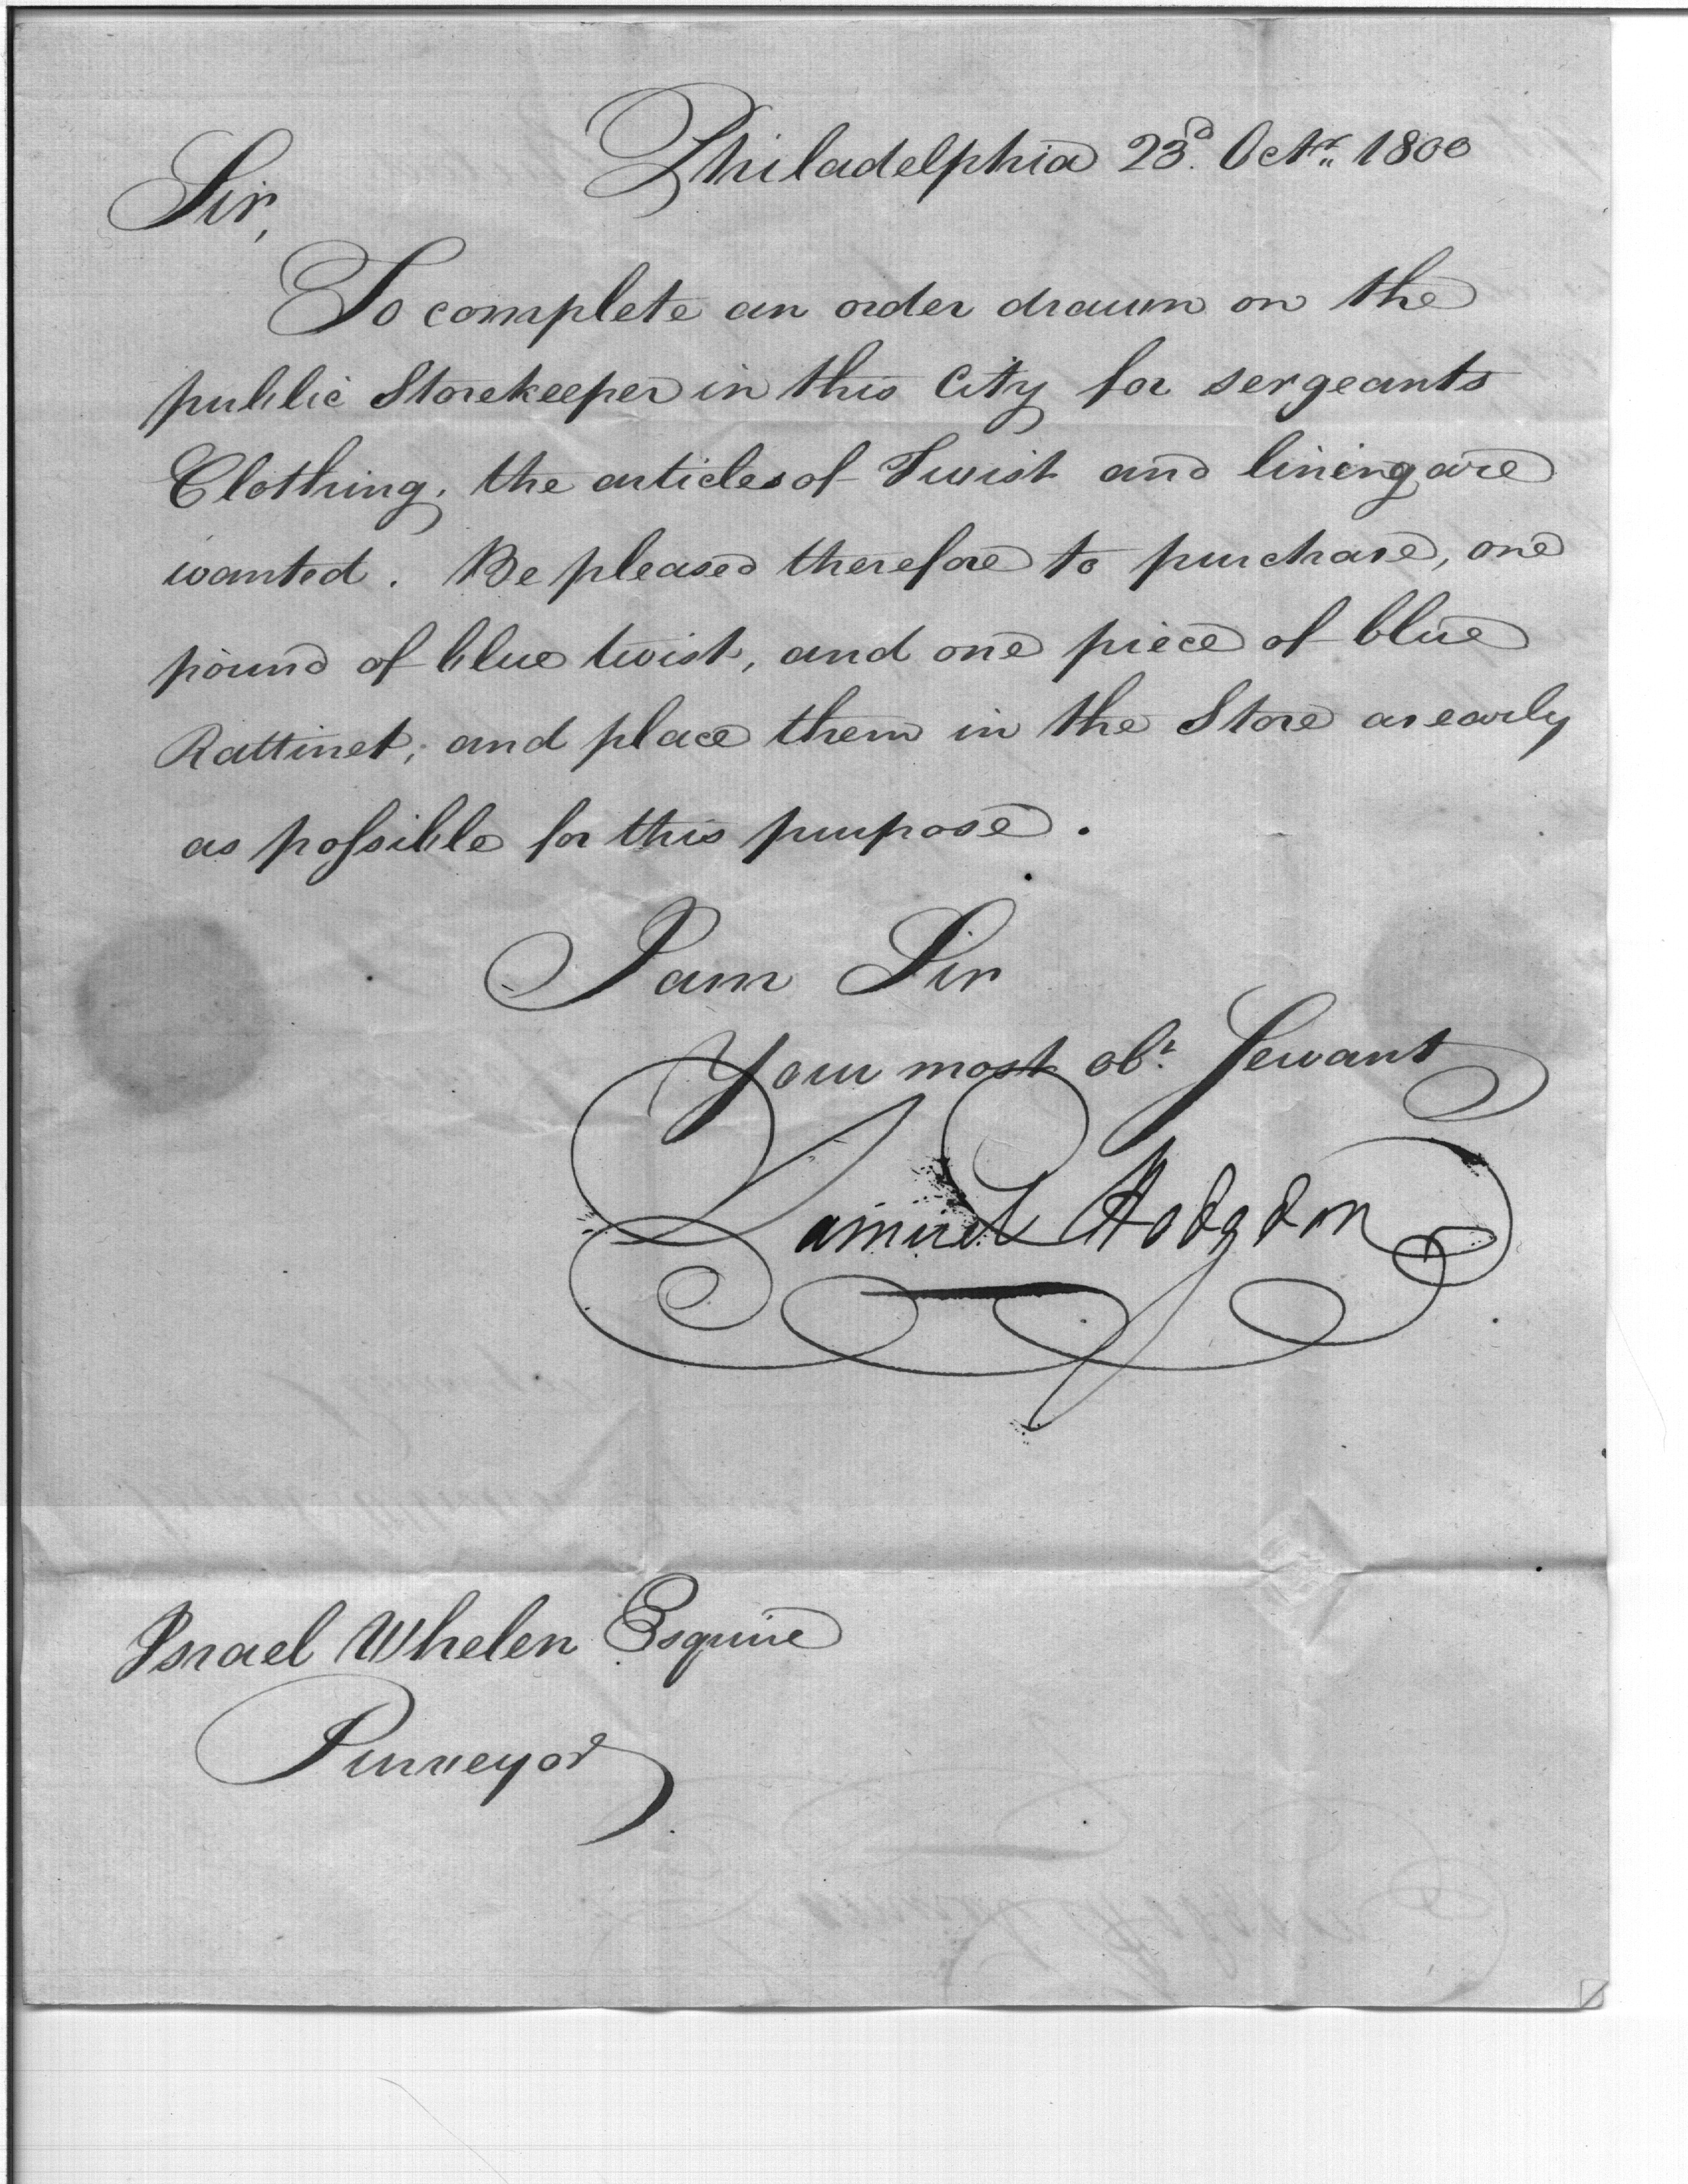 Philadelphia 23d. Octr. 1800
Sir,
To complete an order drawn on the
public Storekeeper in this City for sergeants
Clothing, the articles of Twist and lining are
wanted. Be pleased therefore to purchase, one
pound of blue twist, and one piece of blue
Rattinet; and place them in the Store as early
as possible for this purpose.
I am Sir
Your most obt. Servant
Samuel Hodgdon
Israel Whelen Esquire
Purveyor